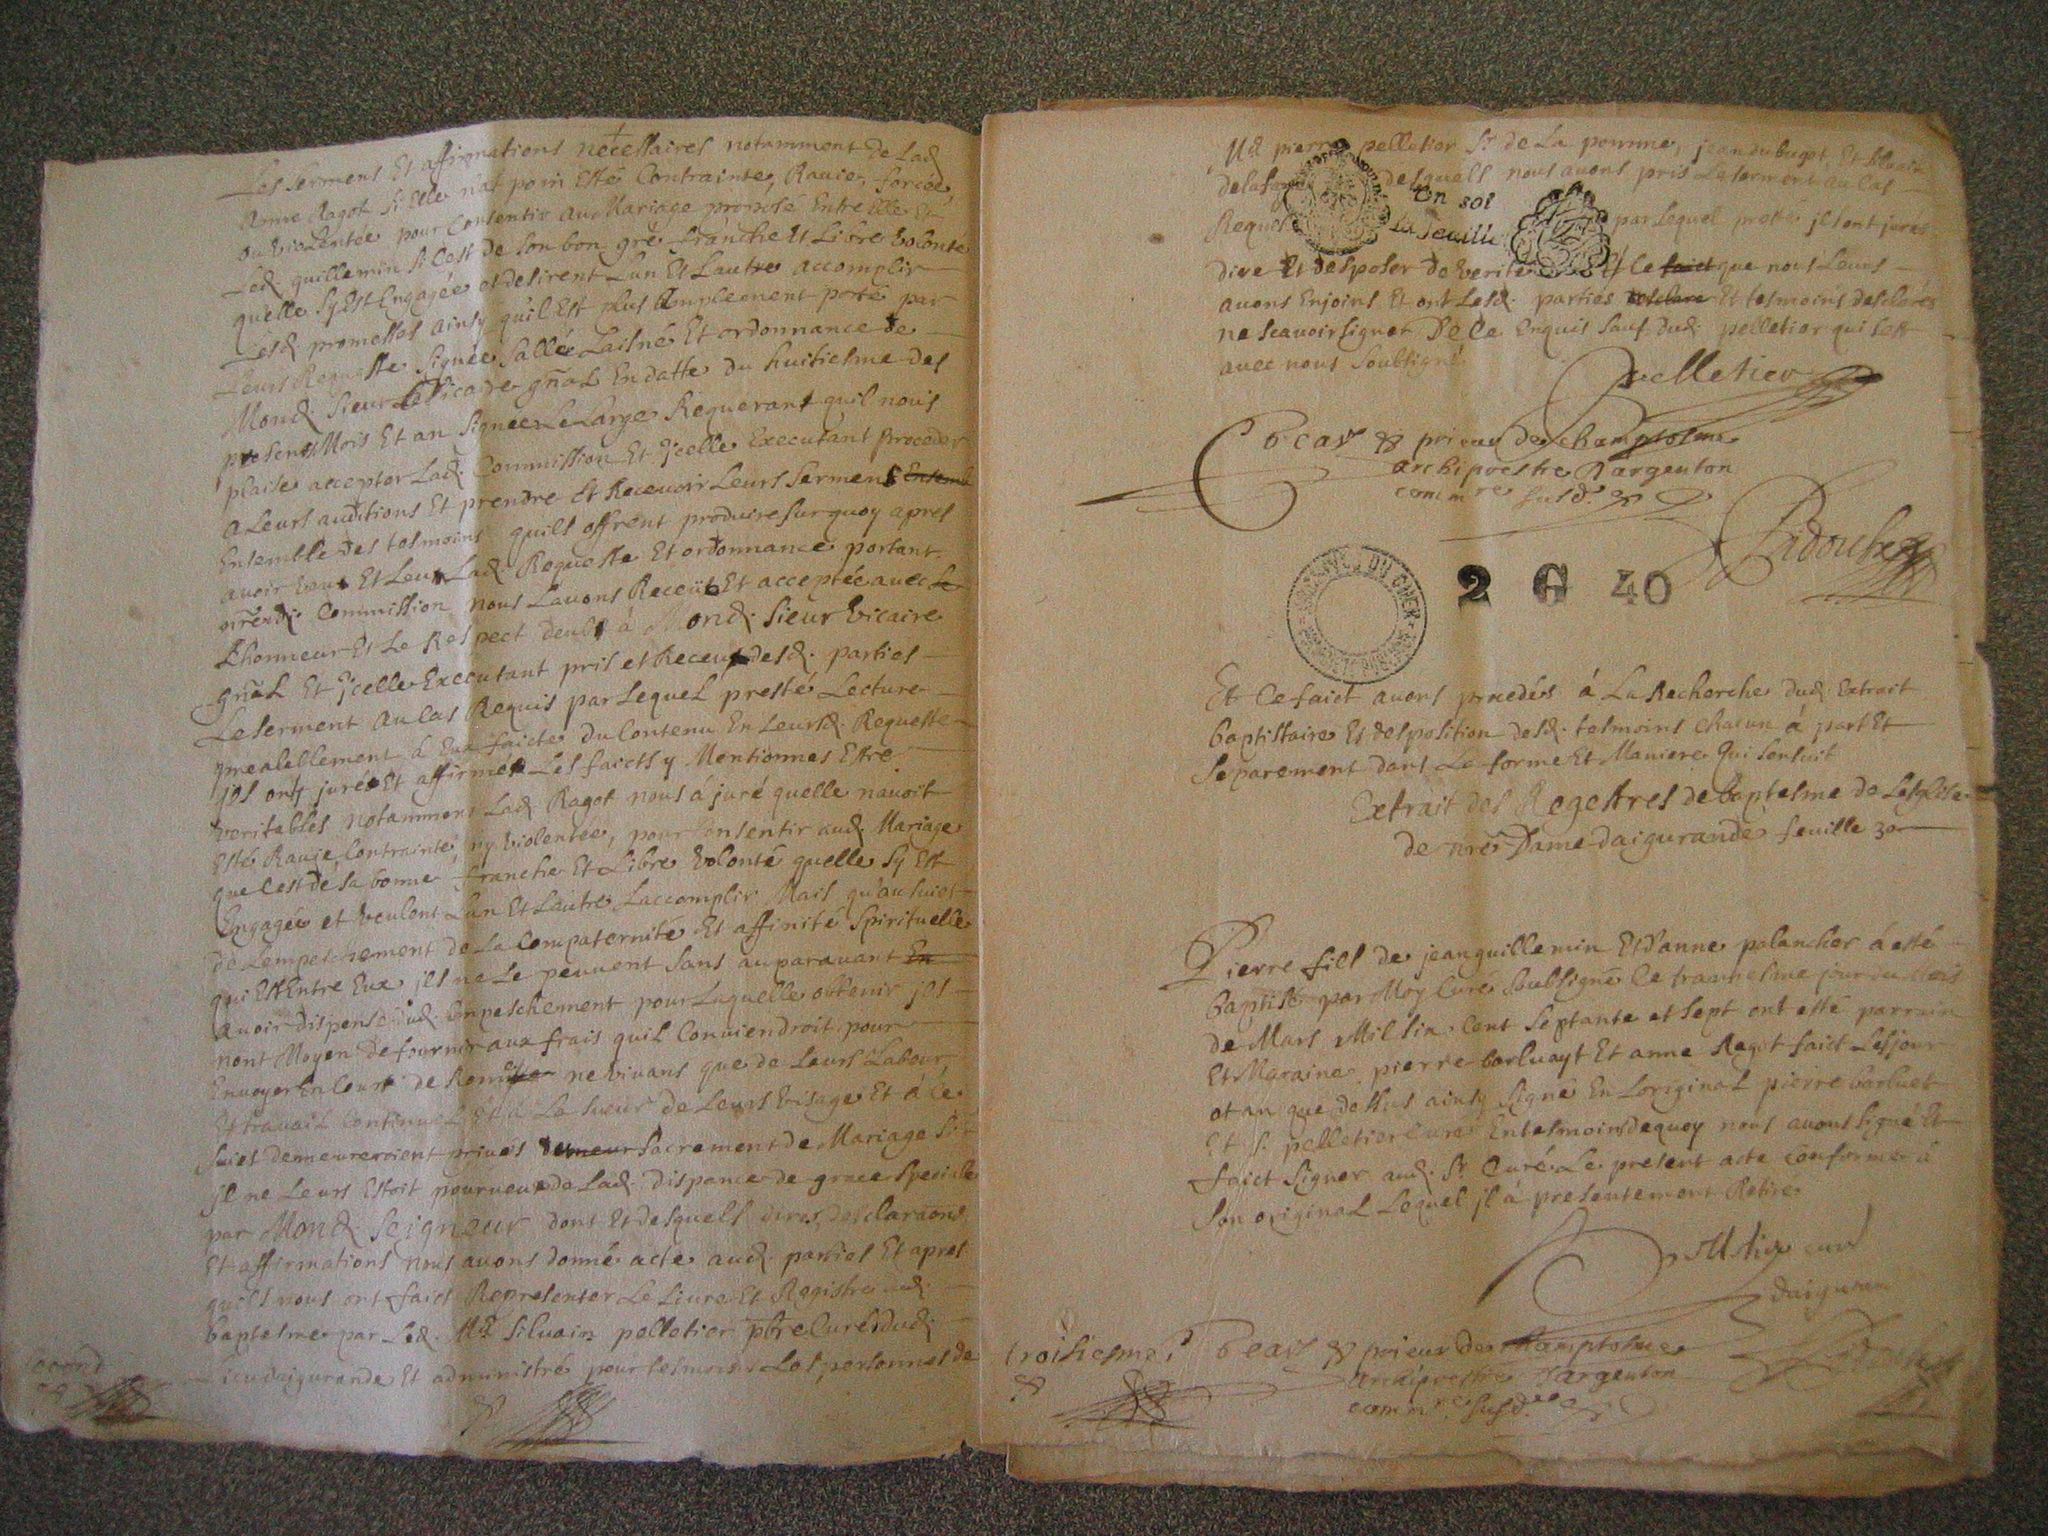 Les serments Et affirmations necessaires notamment de Lad.
Anne Ragot si Elle n'at poin Esté Contrainte, Rauie, forcée,
ou violentée pour Consentir au Mariage proposé Entre elle Et
Led. guillemin si Cest de son bon gré franche Et Libre volonté
quelle sy est Engagée et desirent Lun Et Lautre accomplir
Lesd. promesses ainsy qu'il Est plus amplement porté par
Leurs Requeste signée Sallé Laisné Et ordonnance de
Mond. sieur Le Vicaire gñal En datte du huitiesme des
present Mois Et an signée Le Large Requerant quil nous
plaise accepter Lad. Commission Et ycelle Executant proceder
a Leurs auditions Et prendre Et Receuoir Leurs serments Ensemb
Ensemble des tesmoins quils offrent produire sur quoy apres
avoir veue Et Leue Lad. Requeste Et ordonnance portant
Commission nous Lauons Receüe Et acceptée avec Le
Lhonneur Et Le Respect deub à Mond. sieur vicaire
gñal Et ycelle Executant pris et Receu desd. parties
Le serment au Cas Requis par Lequel presté Lecture
prealablement à Eux faicte du Contenu En Leursd. Requeste
jls ont juré Et affirmé Les faicts y Mentionnes Estre
veritables notamment Lad. Ragot nous á juré quelle nauoit
Esté Rauie, Contrainte, ny violentée, pour Consentir aud. Mariage
que Cest de sa bonne franche Et Libre volonté quelle sy Est
Engagée et veulent Lun Et Lautre Laccomplir Mais qu'au suiet
de Lempeschement de La Compaternité Et affinité spirituelle
qui Est Entre Eux jls ne Le peuvent sans auparauant En
avoir dispense dud. Empeschement pour Laquelle obtenir jls
nont Moyen de fournir aux frais quil Conuiendroit pour
Envoyer En Cour de Rome ne viuans que de Leurs Labour
Et travail Continuel Et à La sueur de Leurs visage Et à Ce
suiet demeureroient privés sacrement de Mariage si
jl ne Leurs Estoit pourveu de Lad. dispance de grace specialle
par Mond. Seigneur dont Et desquels dires, desclarãons
Et affirmations nous avons donné acte aud. parties Et apres
quils nous ont faict Representer Le Liure Et Registre dud.
baptesme par Led. Mẽ siluain pelletier pbre Curé dud.
Lieu daigurande Et administré pour tesmoins Les personnes de
second
Mẽ pierre pelletier Sr. de La pomme, jean dubugot, Et
desquels nous avons pris Le serment au Cas
Requis par Lequel presté jls ont jurés
Un sol
La feuille
dire Et desposer de verité Et Ce faict que nous Leurs
avons Enjoins Et ont Lesd. parties desclare Et tesmoins desclarés
ne scavoir signer De Ce Enquis sauf dud. pelletier qui sest
avec nous soubsigné
Pelletier
Cocas prieur de Champtosme
archiprestre Dargenton
commre susd.
Pidoulx
2 G 40
ARCHIVES DU CHER
Et Ce faict avons procedés á La Recherche dud. Extrait
baptistaire Et desposition desd. tesmoins Chacun á part Et
separement dans La forme Et Maniere Qui sensuit
Extrait des Regestres de baptesme de Lesglise
de nrẽ Dame daigurande feuille 30
Pierre fils de jean guillemin Et danne palancher á esté
baptisé par Moy Curé soubsigné Ce jour du Mois
de Mars Mil six Cent septante et sept ont esté parrain
Et Maraine pierre barluayt Et anne Ragot faict Les jour
et an que dessus ainsy signé En Loriginal pierre barluet
Et S. pelletier Curé En tesmoins dequoy nous avons signé Et
faict signer aud. Sr. Curé Le present acte Conforme á
son original Lequel jl á presentement Retiré
Pelletier curé
daigurande
troisiesme
Cocas prieur de Champtosme
archiprestre Dargenton
commre. susd.
Pidoulx